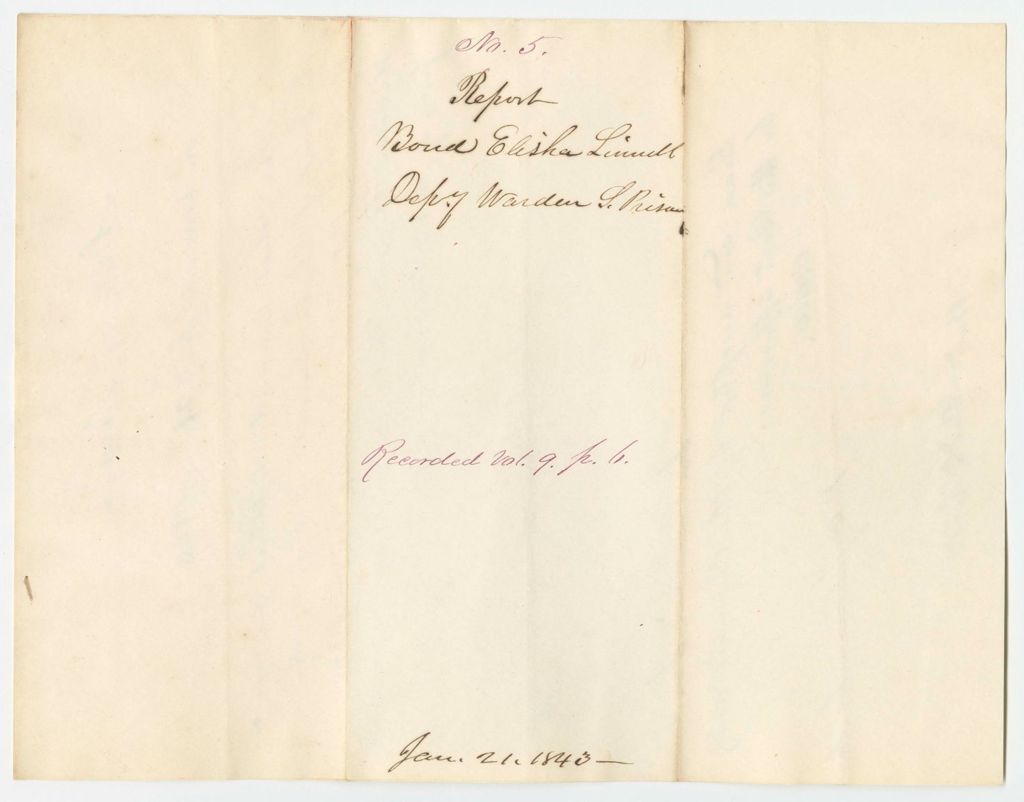 No. 5.
Report
Bond Elisha Linnell
Depy Warden S. Prison
Recorded Vol. 9. p. 6.
Jan. 21. 1843—